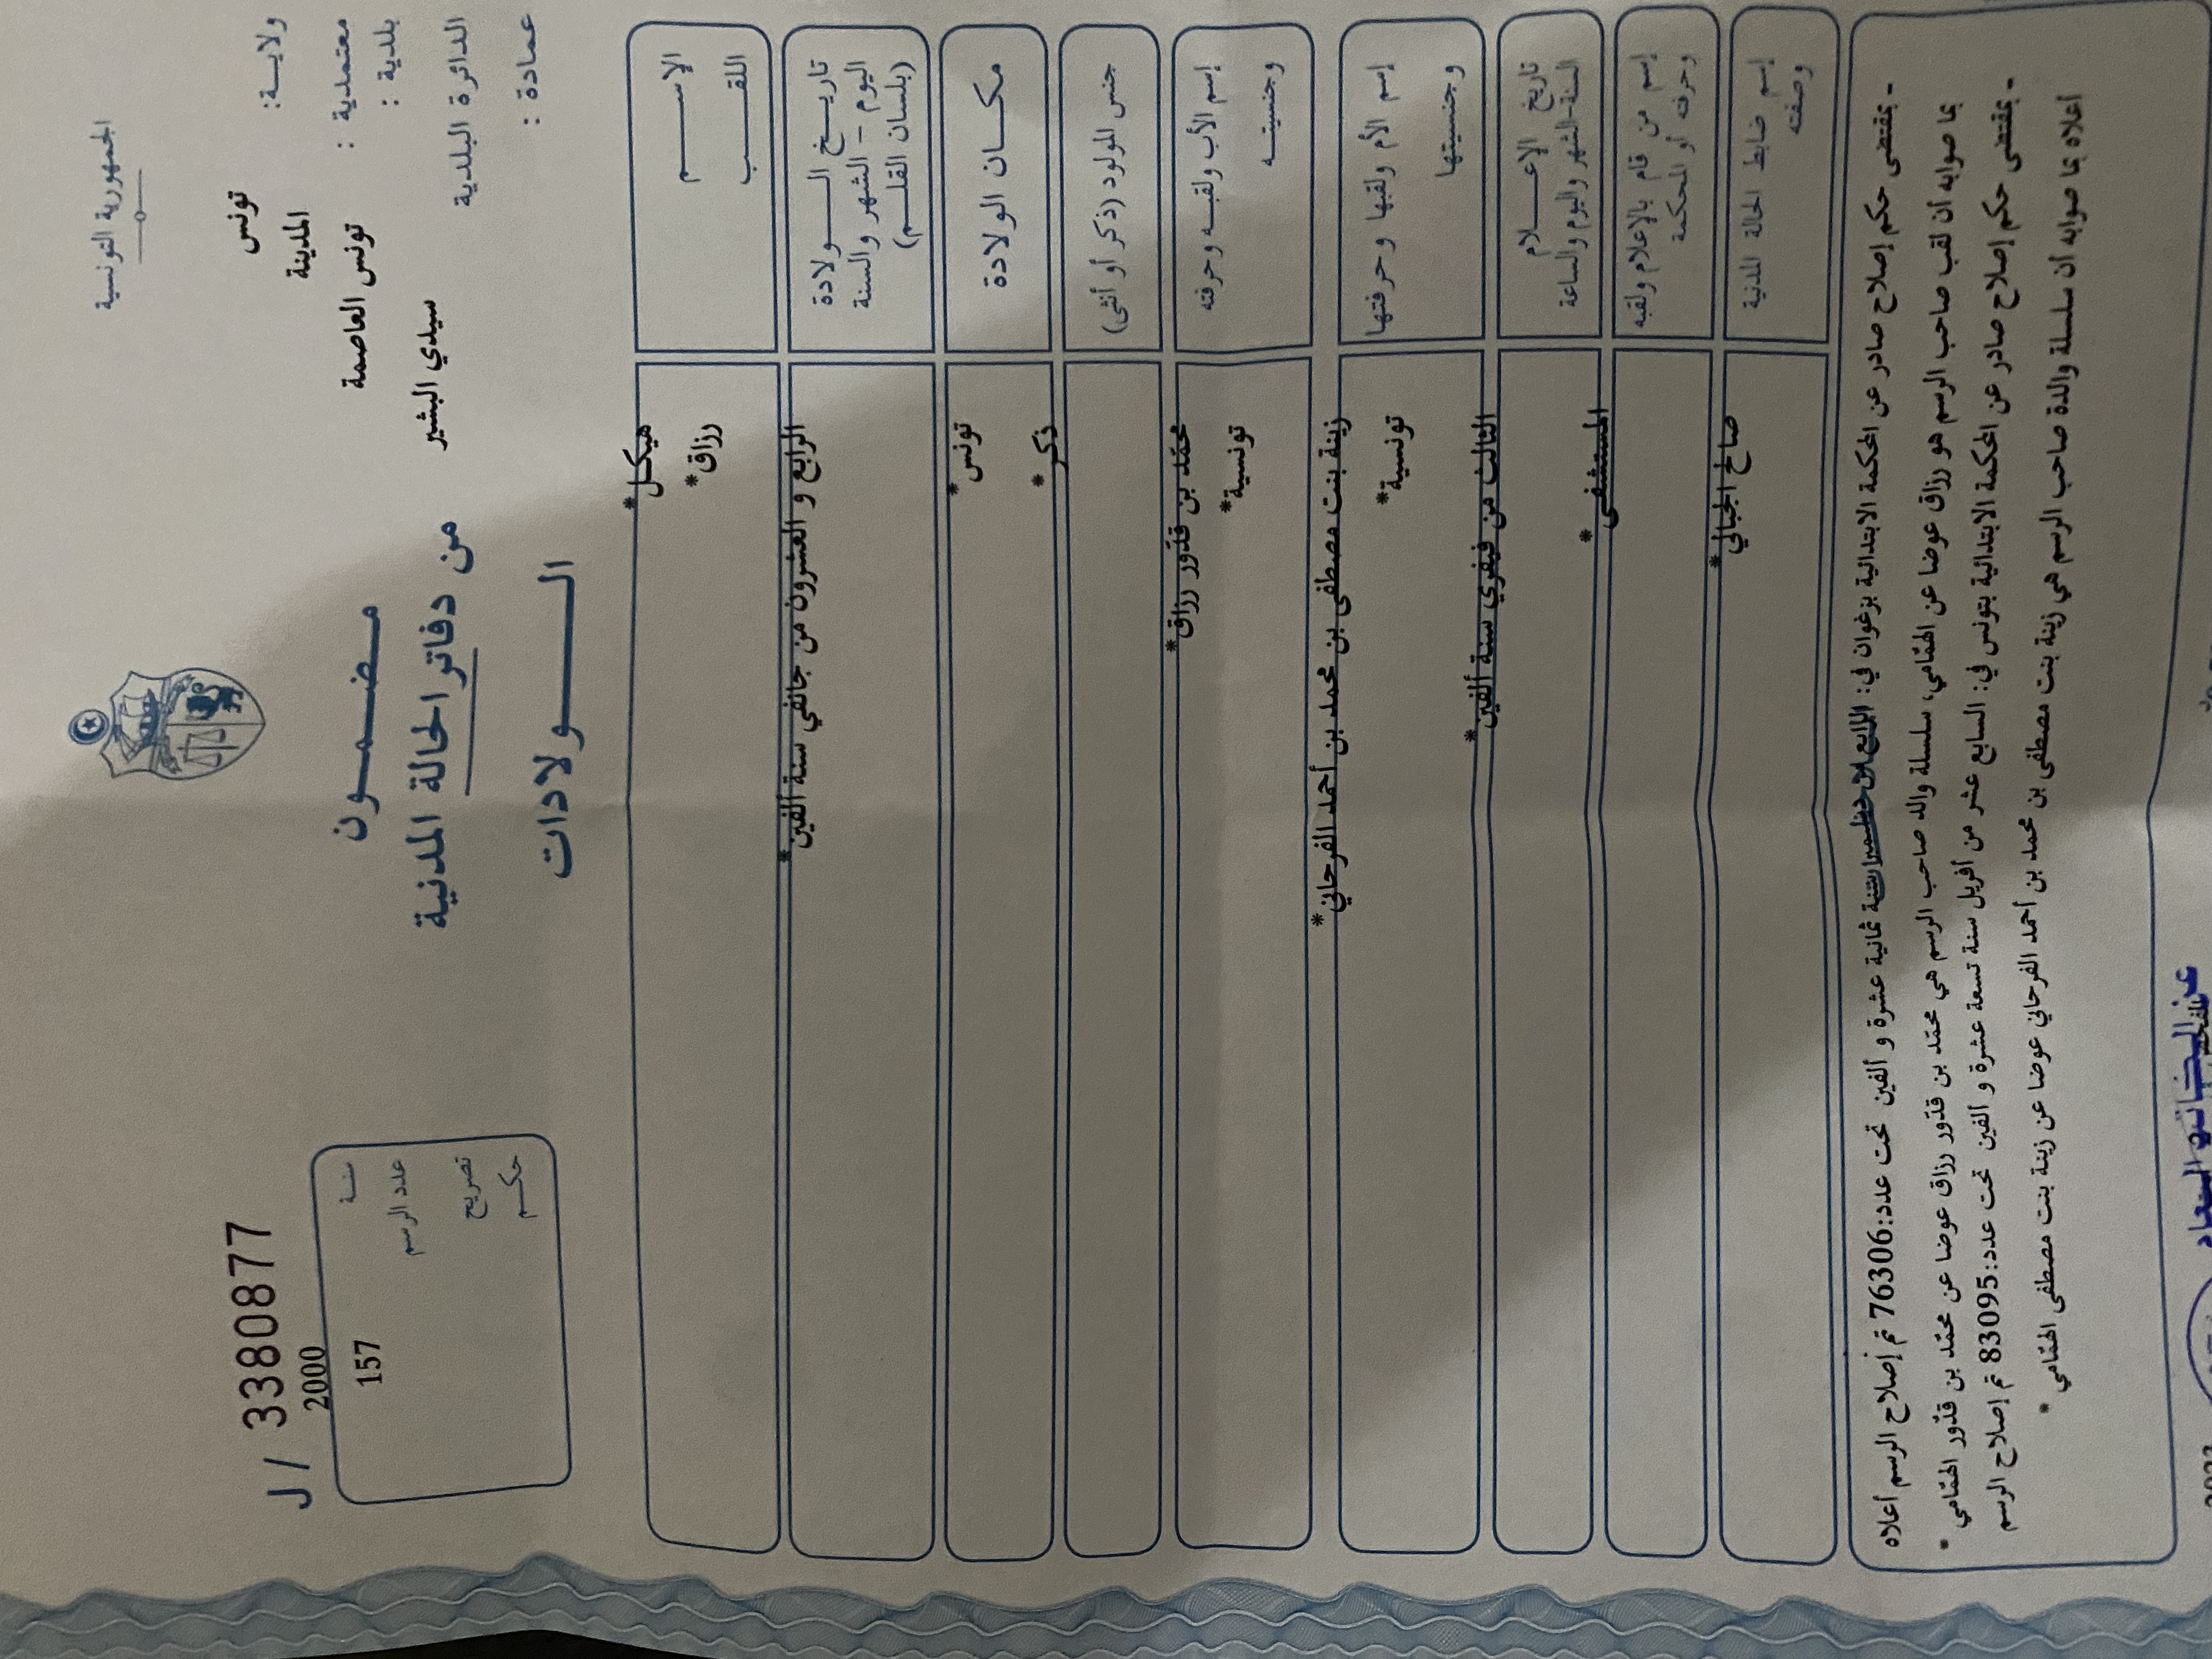 الجمهورية التونسية
ولايـــة: تونس
معتمدية : المدينة
بلدية : تونس العاصمة
الدائرة البلدية سيدي البشير
عمادة :
مـضـمـــون
من دفاتر الحالة المدنية
الـــــولادات
J / 3380877
2000
سنـــة 157
عدد الرسم
تصريح
حكـــم
الإســـــم هيكل*
اللقـــــب رزاق*
تاريـــخ الـــــولادة الرابع و العشرون من جانفي سنة ألفين*
اليوم - الشهر والسنة
(بلسان القلـــم)
مكـــان الـولادة تونس*
جنس المولود (ذكر أو أنثى) ذكر*
إسم الأب ولقبـه وحرفته محمّد بن قدّور رزاق*
وجنسيتــه تونسية*
إسم الأم ولقبها وحرفتها زينة بنت مصطفى بن محمد بن أحمد الفرحاني*
وجنسيتها تونسية*
تاريخ الإعـــــلام الثالث من فيفري سنة ألفين*
السنة-الشهر واليوم والساعة
إسم من قام بالإعلام ولقبه المستشفى*
وحرفته أو المحكمة
إسم ضابط الحالة المدنية صالح الجبالي*
وصفته
- بمقتضى حكم إصلاح صادر عن المحكمة الابتدائية بزغوان في: ثمانية عشرة و ألفين تحت عدد:76306 تم إصلاح الرسم أعلاه
بما صوابه أن لقب صاحب الرسم هو رزاق عوضا عن الهمّامي، سلسلة والد صاحب الرسم هي محمّد بن قدّور رزاق عوضا عن محمّد بن قدّور الهمّامي *
- بمقتضى حكم إصلاح صادر عن المحكمة الابتدائية بتونس في: السابع عشر من أفريل سنة تسعة عشرة و ألفين تحت عدد:83095 تم إصلاح الرسم
أعلاه بما صوابه أن سلسلة والدة صاحب الرسم هي زينة بنت مصطفى بن محمد بن أحمد الفرحاني عوضا عن زينة بنت مصطفى الهمّامي *